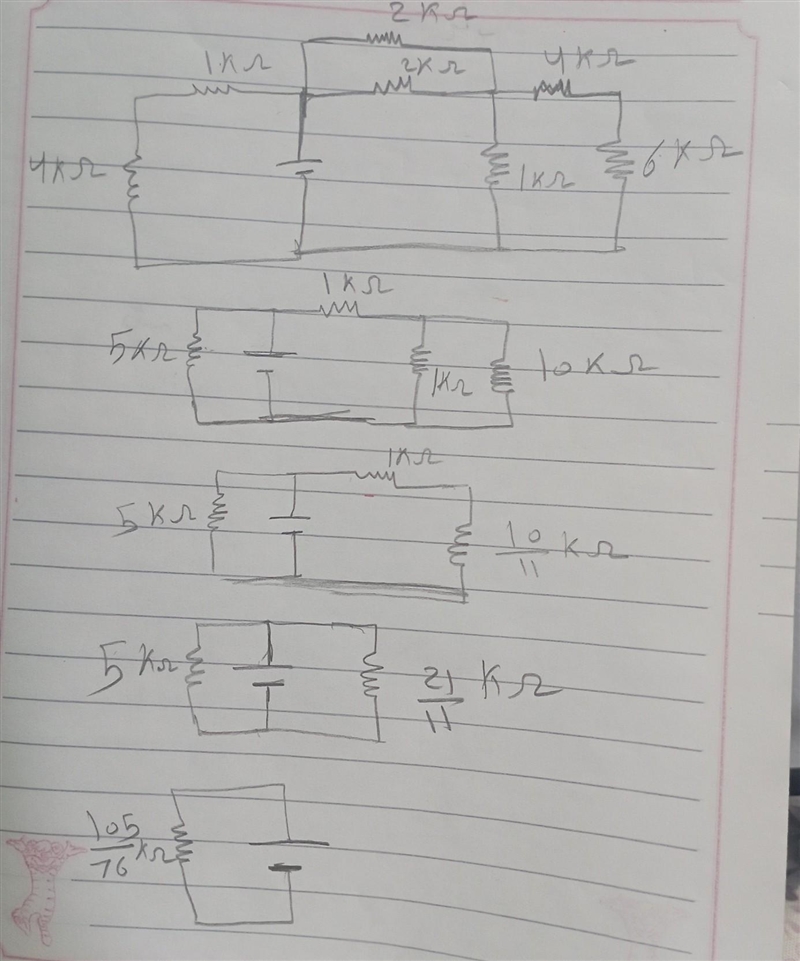 2KΩ
1KΩ 2KΩ 4KΩ
4KΩ 1KΩ 6KΩ
1KΩ
5KΩ 1KΩ 10KΩ
1KΩ
5KΩ 10/11 KΩ
5KΩ 21/11 KΩ
105/76 KΩ